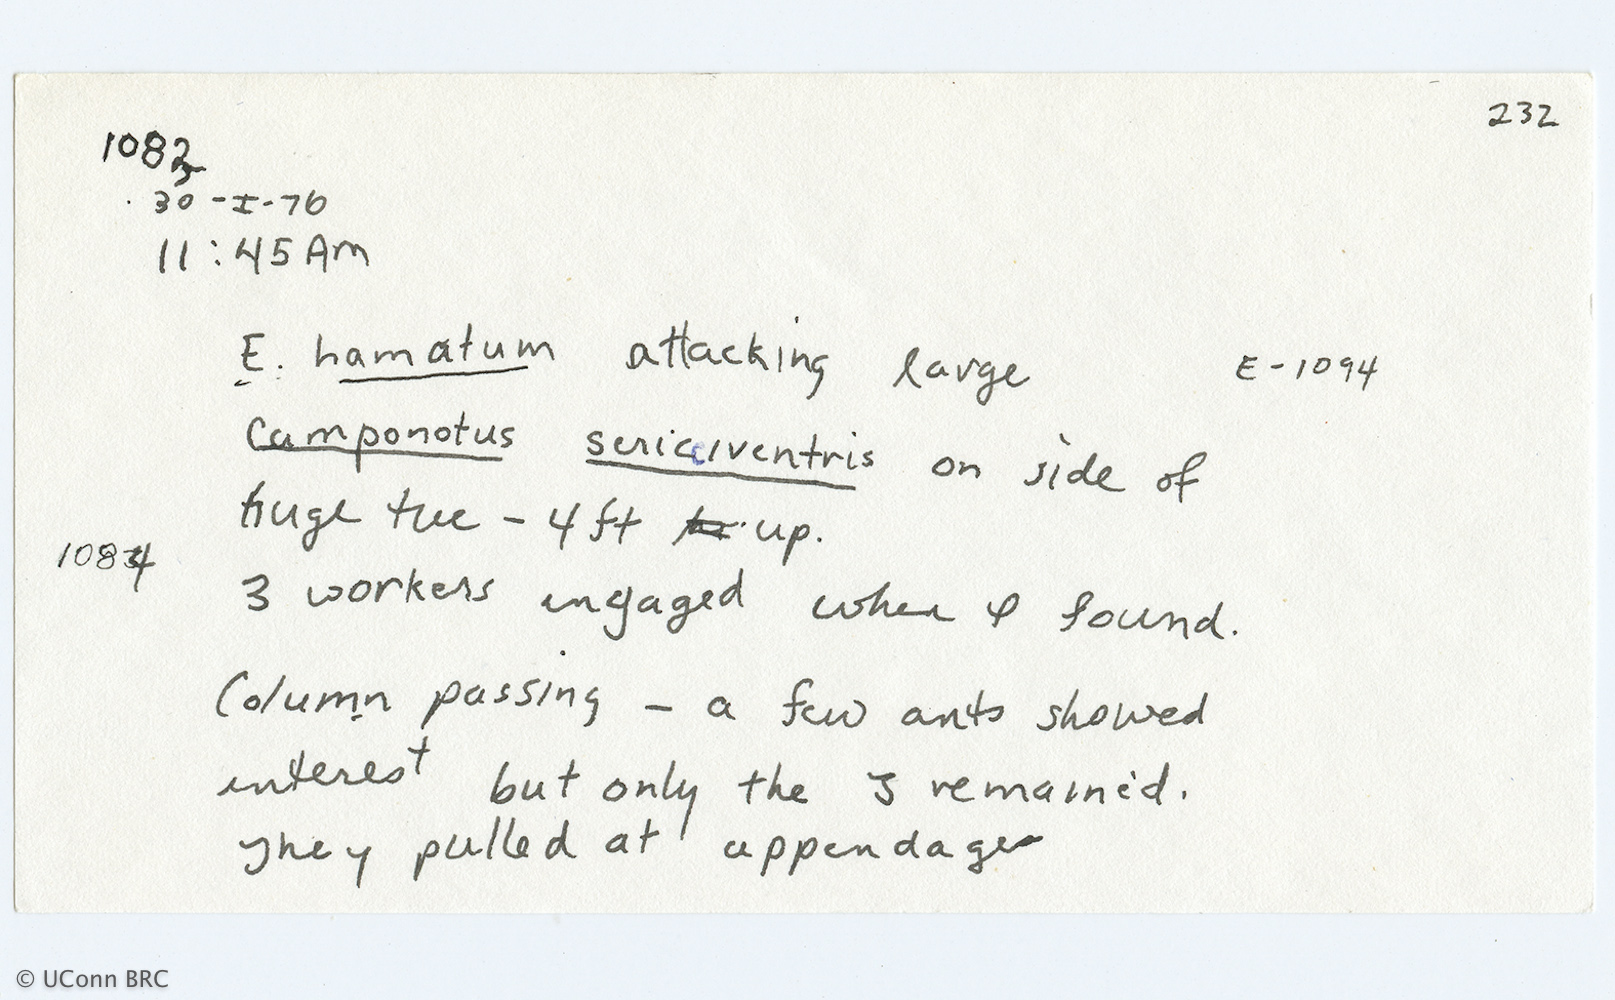 232
1083
30-I-76
11:45 Am
E. hamatum attacking large E-1094
Camponotus sericeiventris on side of
huge tree - 4 ft up.
1084
3 workers engaged when I found.
Column passing - a few ants showed
interest but only the 3 remained.
They pulled at appendages
© UConn BRC